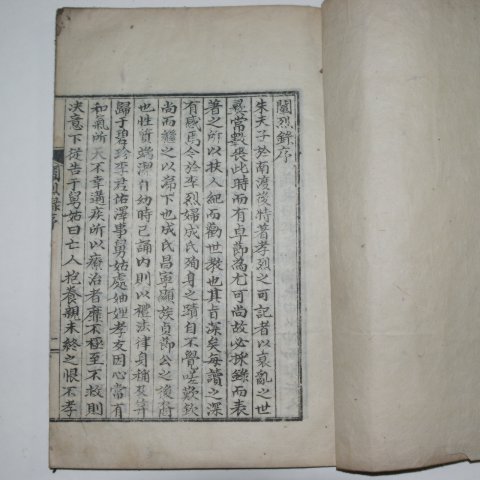 闡烈錄序
朱夫子於南渡後特著孝烈之可記者以衰亂之世
尋常數張此時而有卓節為尤可尚故必採錄而表
著之所以扶人紀而勸世教也其旨深矣每讀之深
有感焉今於李烈婦成氏殉身之蹟自不覺嗟歎欽
尚而繼之以涕下也成氏昌寧顯族貞節公之後裔
也性質端潔自幼時已誦內則以禮法律身稱及笄
歸于碧珍李君佑澤事舅姑處妯娌孝友因心當有
和氣所天不幸遘疾所以療治者靡不極至不救則
决意下從告于舅姑曰亡人抱養親未終之恨不孝